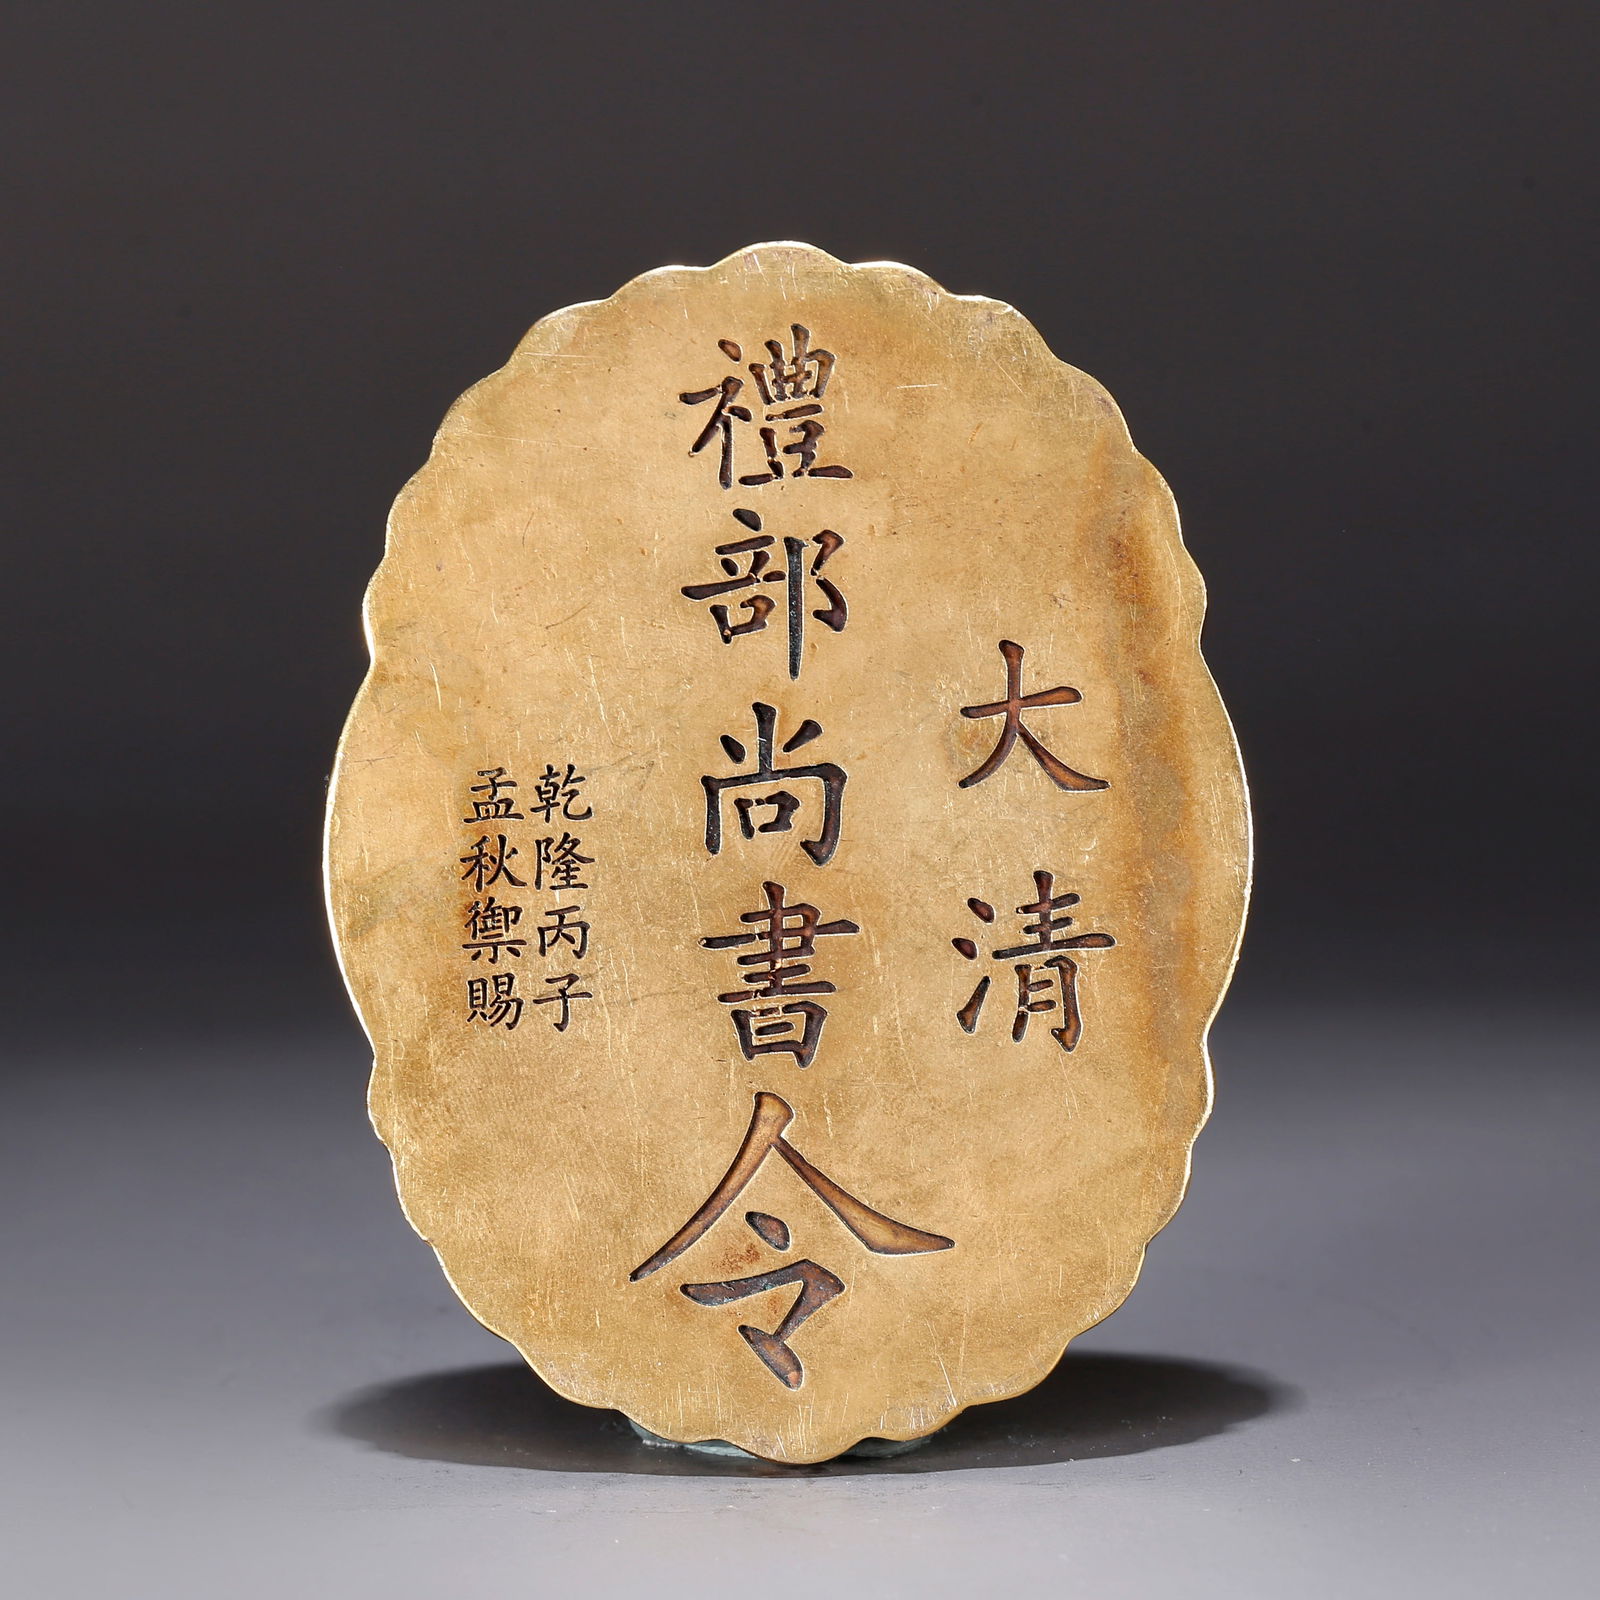 大清
禮部尚書令
乾隆丙子
孟秋御賜